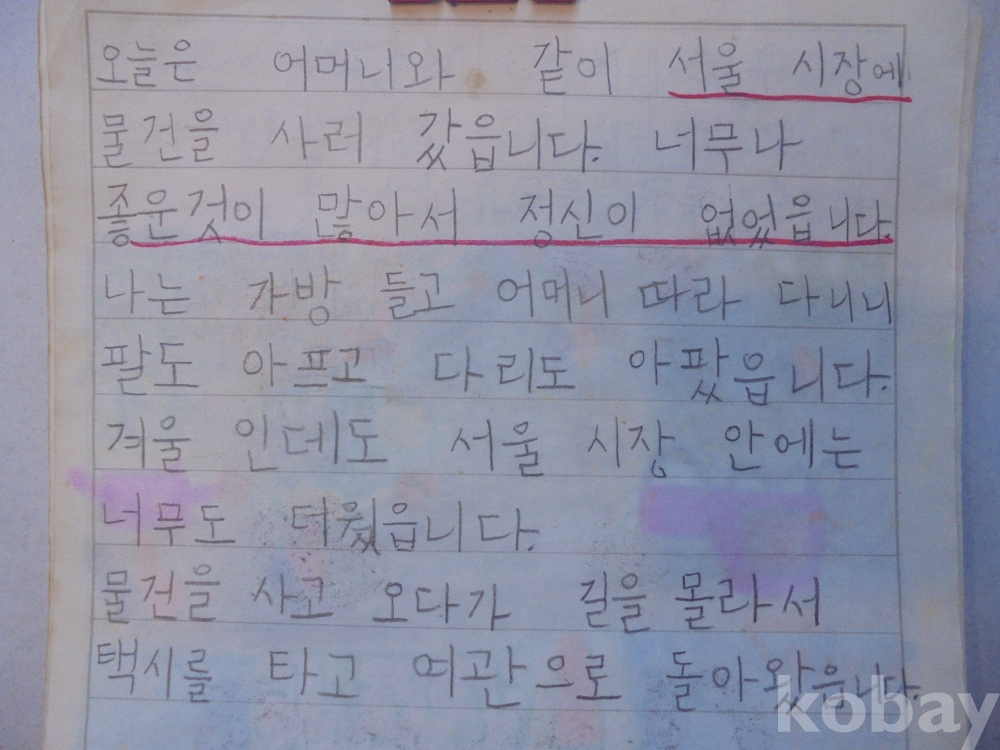 오늘은 어머니와 같이 서울 시장에
물건을 사러 갔읍니다. 너무나
좋운것이 많아서 정신이 없었읍니다.
나는 가방 들고 어머니 따라 다니니
팔도 아프고 다리도 아팠읍니다.
겨울 인데도 서울 시장 안에는
너무도 더웠읍니다.
물건을 사고 오다가 길을 몰라서
택시를 타고 여관으로 돌아왔읍니다.
kobay